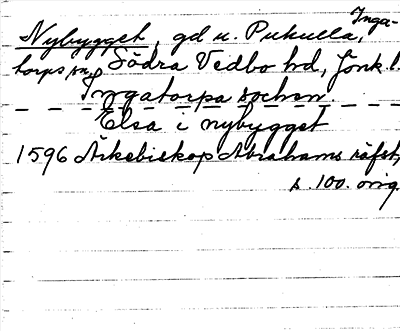 Nybygget, gd u. Pukulla, Inga-
torps sn, Södra Vedbo hd, Jönk. l.
Ingatorpa sochen
Elsa i nybygget
1596 Ärkebiskop Abrahams räfst,
s. 100. orig.